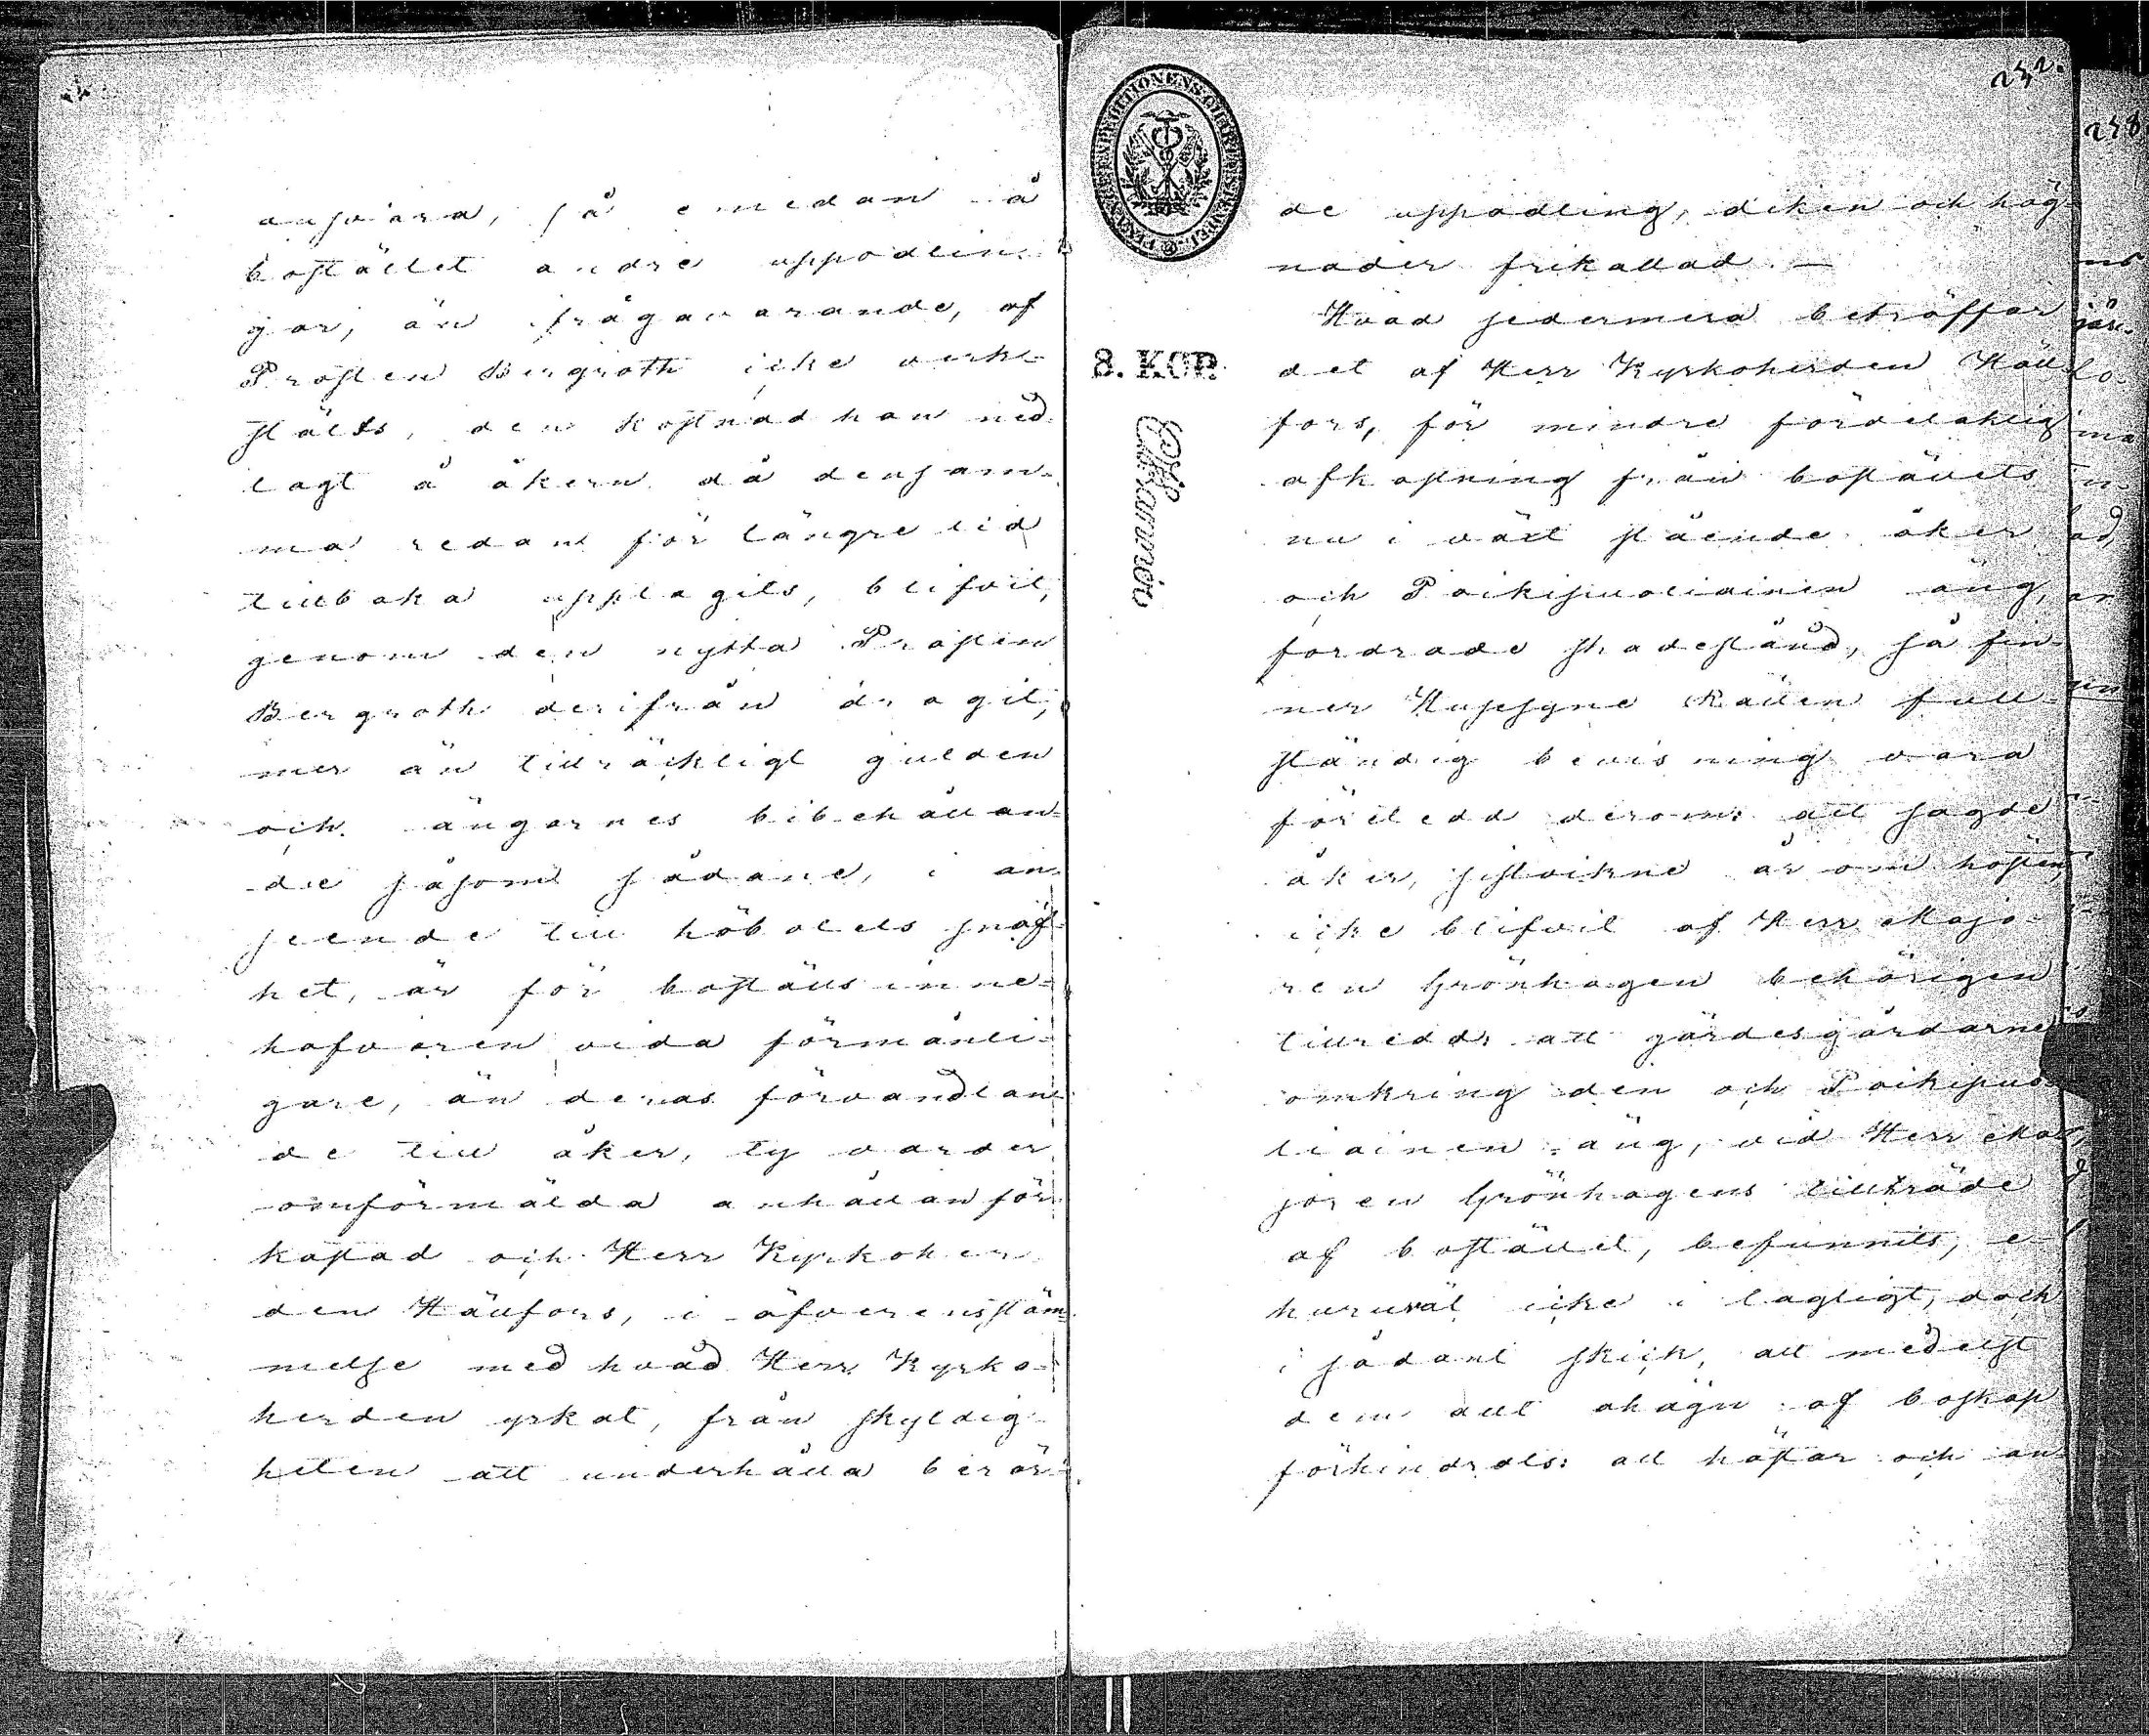 ansvara, så emedan å
bostället andre uppodlin-
gar, än ifrågavarande, af
Prosten Bergroth icke verk-
stälts, den kostnad han ned-
lagt å åkern då densam-
ma redan för längre tid
tillbaka upptagits, blifvit,
genom den nytta Prosten
Bergroth derifrån dragit,
mer än tillräckligt gulden
och ängarnes bibehållan-
de såsom sådane, i an-
seende till höbolets snäf-
het, är för boställsinne-
hafvaren vida förmånli-
gare, än deras förvandlan-
de till åker, ty varder
omförmälda anhållan för-
kastad och Herr Kyrkoher-
den Hällfors, i öfverensstäm-
melse med hvad Herr Kyrko-
herden yrkat, från skyldig-
heten att underhålla berör-
232.
8. KOP.
de uppodling, diken och häg-
nader frikallad. —
Hvad sedermera beträffar
det af Herr Kyrkoherden Häll-
fors, för mindre fördelaktig
afkastning från boställets
nu i växt stående åker
och Poikipuoliainen äng,
fordrade skadestånd, så fin-
ner HusesyneRätten full-
ständig bevisning vara
företedd derom: att sagde
åker, sistvikne år om hösten,
icke blifvit af Herr Majo-
ren Grönhagen behörigen
tillredd: att gärdesgårdarne
omkring den och Poikipuo-
liainen äng, vid Herr Ma-
joren Grönhagens tillträde
af bostället, befunnits, e-
huruväl icke i lagligt, dock
i sådant skick, att medelst
dem all ohägn af boskap
förhindrats: att hästar och an-
238